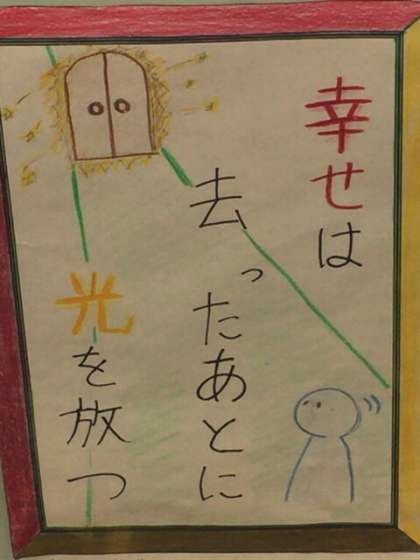 幸せは
去ったあとに
光を放つ